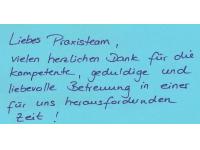 Liebes Praxisteam,
vielen herzlichen Dank für die
kompetente, geduldige und
liebevolle Betreuung in einer
für uns herausfordernden
Zeit!